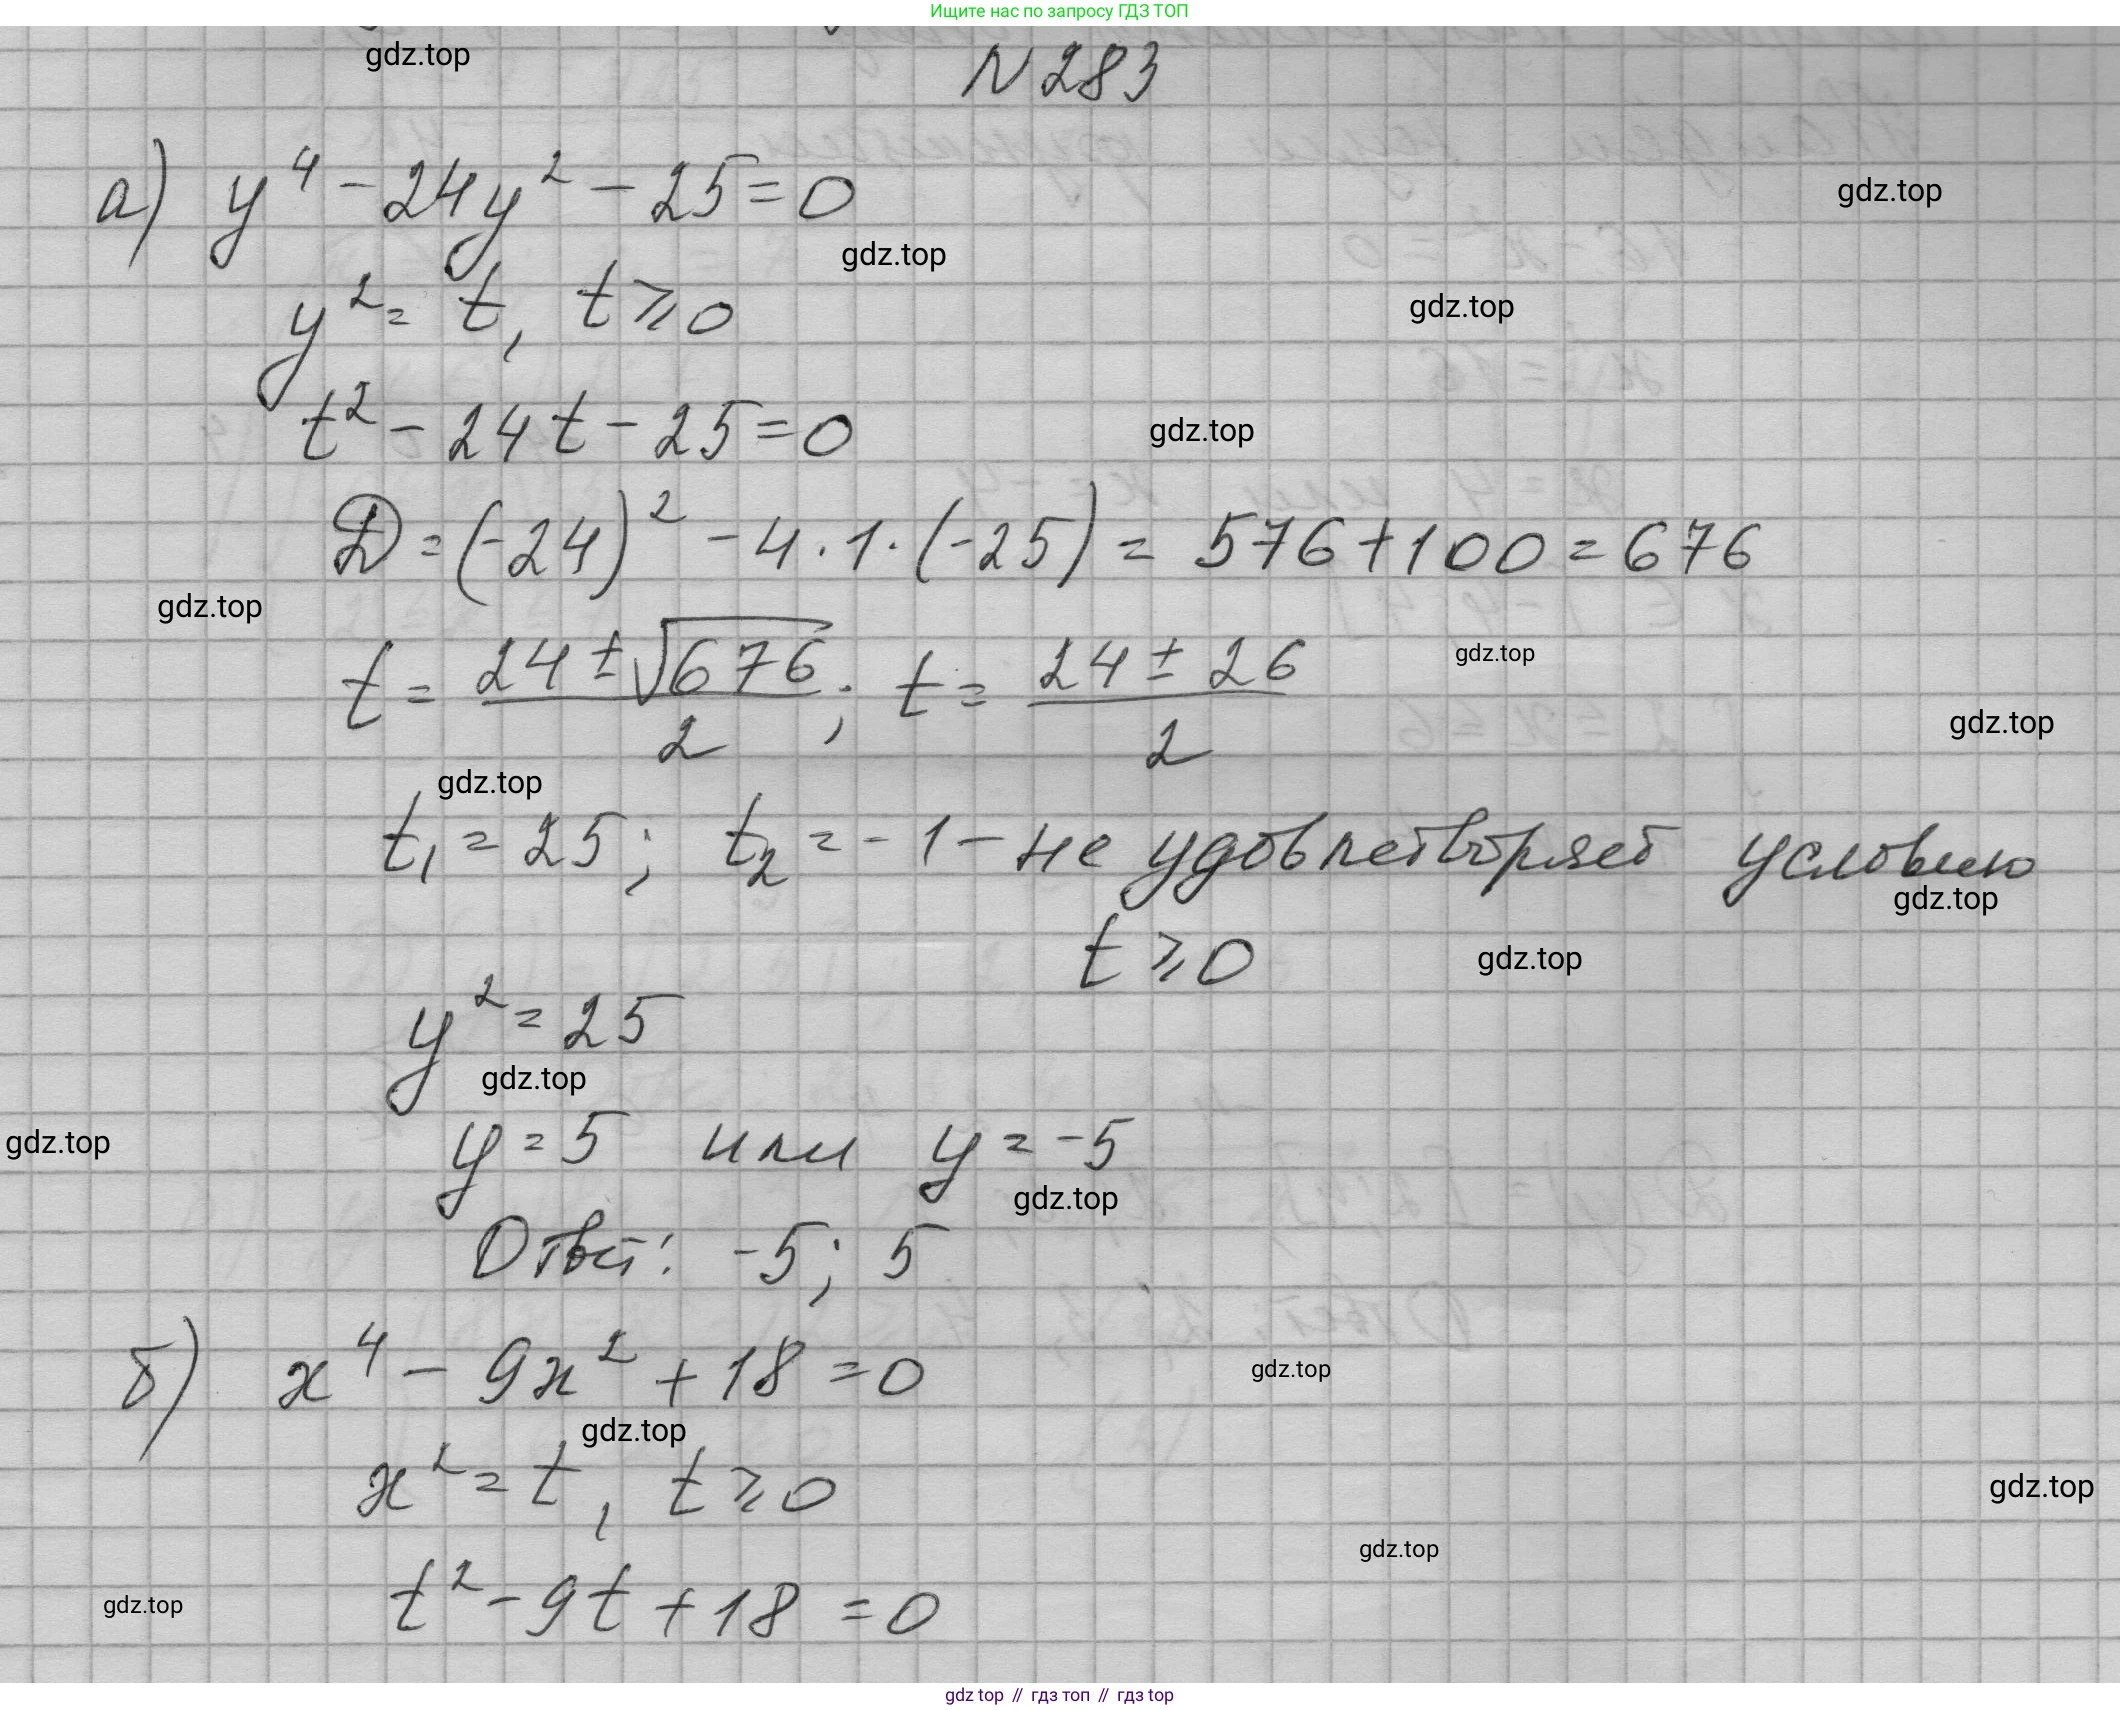 Ищите нас по запросу ГДЗ ТОП
gdz.top
N 283
а) y⁴ - 24y² - 25 = 0
gdz.top
gdz.top
y² = t, t ⩾ 0
gdz.top
t² - 24t - 25 = 0
gdz.top
D = (-24)² - 4 · 1 · (-25) = 576 + 100 = 676
gdz.top
t = (24 ± √676)/2 ; t = (24 ± 26)/2
gdz.top
gdz.top
gdz.top
t₁ = 25; t₂ = -1 - не удовлетворяет условию
gdz.top
t ⩾ 0
gdz.top
y² = 25
gdz.top
gdz.top
y = 5 или y = -5
gdz.top
Ответ: -5; 5
б) x⁴ - 9x² + 18 = 0
gdz.top
gdz.top
x² = t, t ⩾ 0
gdz.top
gdz.top
t² - 9t + 18 = 0
gdz.top
gdz top // гдз топ // гдз top